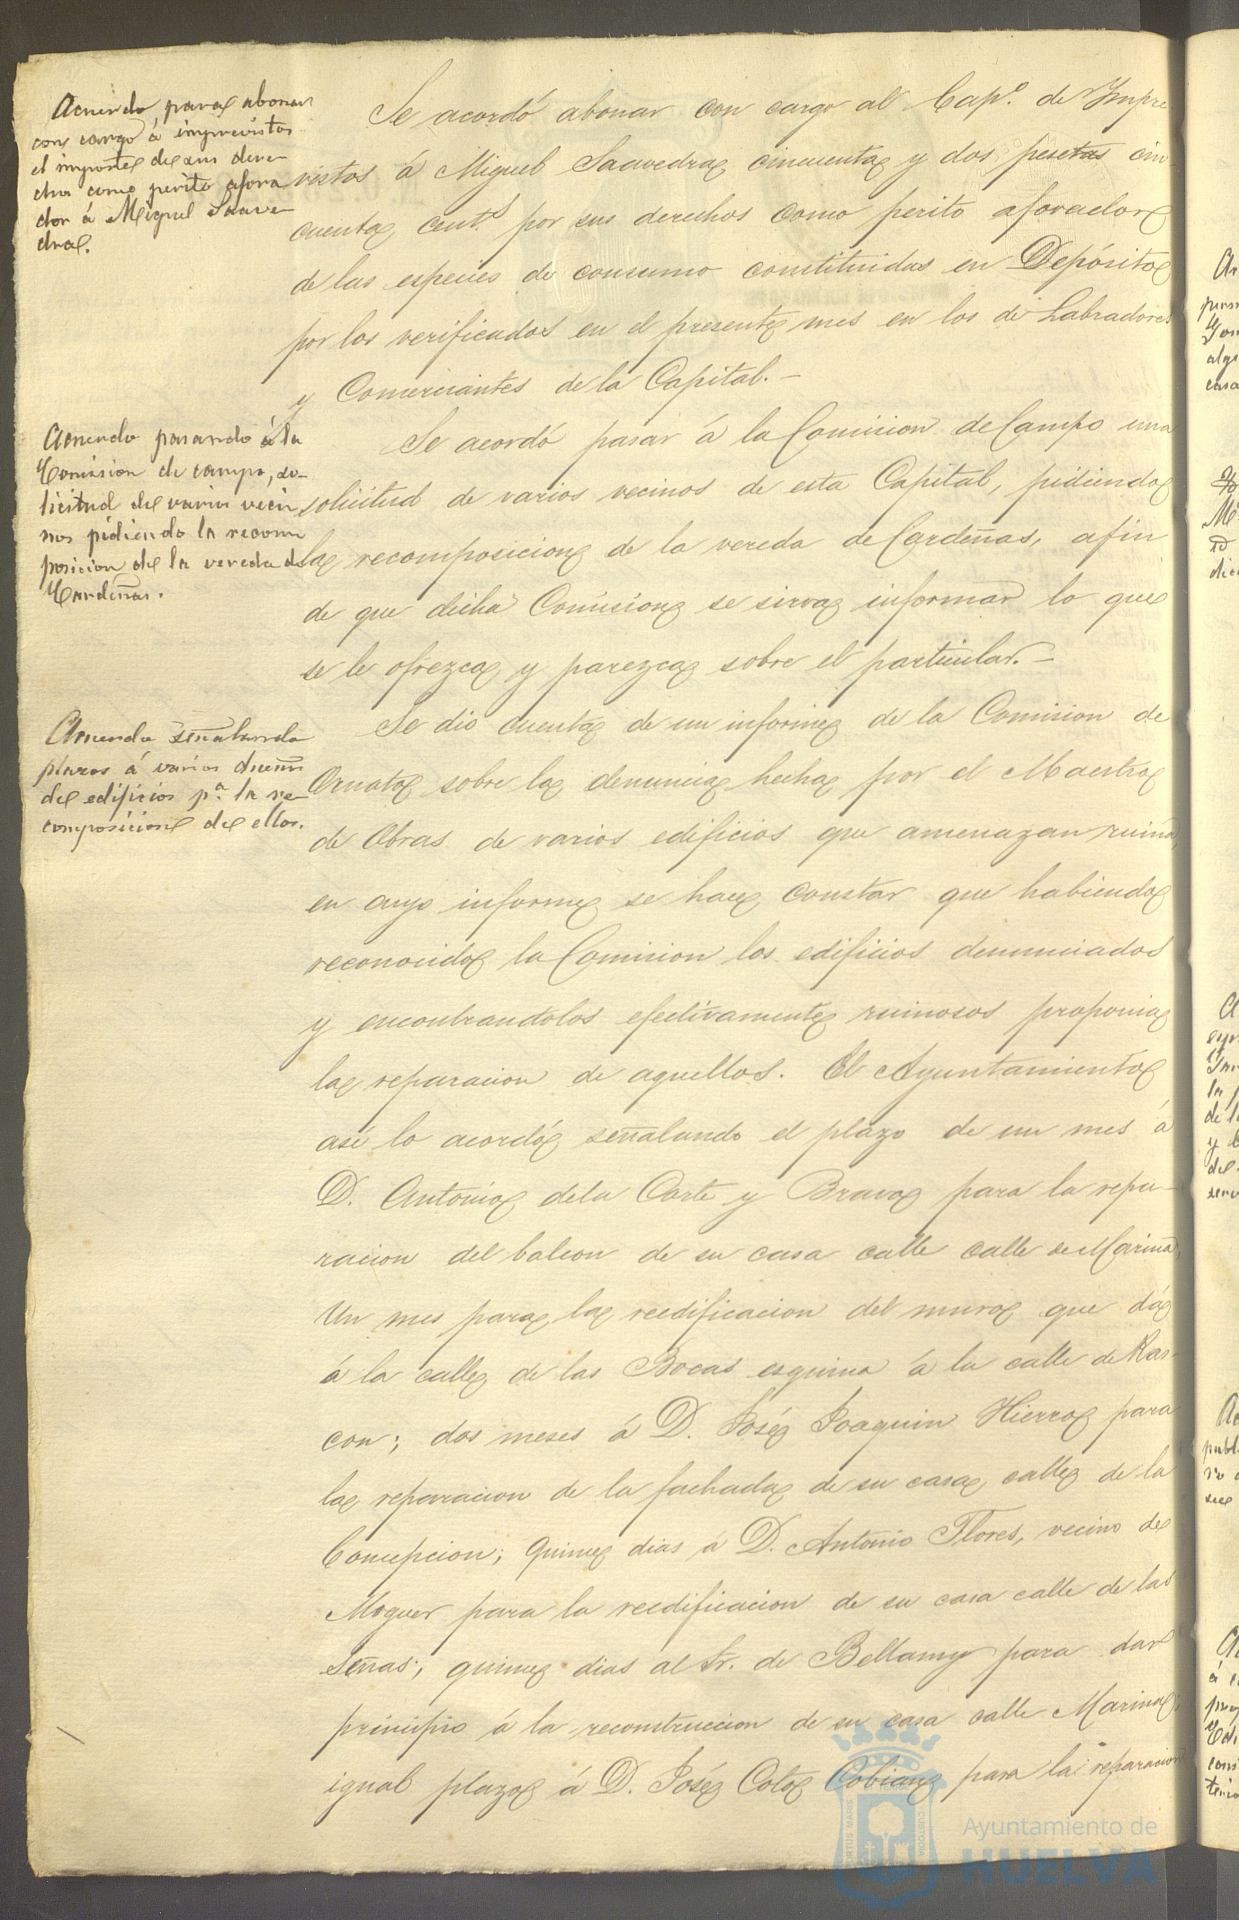 Acuerdo para abonar
con cargo á imprevistos
el importe de sus dere-
chos como perito afora
dor á Miguel Saave-
dra.
Se acordó abonar con cargo al Cap.º de Impre
vistos á Miguel Saavedra cincuenta y dos pesetas cin
cuenta cent.s por sus derechos como perito aforador
de las especies de consumo constituidas en Depósito
por los verificados en el presente mes en los de Labradores
y Comerciantes de la Capital.-
Acuerdo pasando á la
Comision de campo, so-
licitud de varios veci
nos pidiendo la recom
posicion de la vereda de
Cardeñas.
Se acordó pasar á la Comision de Campo una
solicitud de varios vecinos de esta Capital, pidiendo
la recomposicion de la vereda de Cardeñas, afin
de que dicha Comision se sirva informar lo que
se le ofrezca y parezca sobre el particular.-
Acuerdo señalando
plazos á varios dueños
de edificios p.ª la re-
composicion de ellos.
Se dio cuenta de un informe de la Comision de
Ornato sobre la denuncia hecha por el Maestro
de Obras de varios edificios que amenazan ruina,
en cuyo informe se hace constar que habiendo
reconocido la Comision los edificios denunciados
y encontrandolos efectivamente ruinosos proponia
la reparacion de aquellos. El Ayuntamiento
asi lo acordó señalando el plazo de un mes á
D. Antonio dela Corte y Bravo para la repa-
racion del balcon de su casa calle calle de Marina,
Un mes para la reedificacion del muro que dá
á la calle de las Bocas esquina á la calle de Ras-
con; dos meses á D. José Joaquin Hierro para
la reparacion de la fachada de su casa calle de la
Concepcion; quince dias á D. Antonio Flores, vecino de
Moguer para la reedificacion de su casa calle de las
Señas; quince dias al Sr. de Bellamy para dar
principio á la reconstruccion de su casa calle Marina;
igual plazo á D. José Coto Cobian para la reparacion
Ayuntamiento de
HUELVA